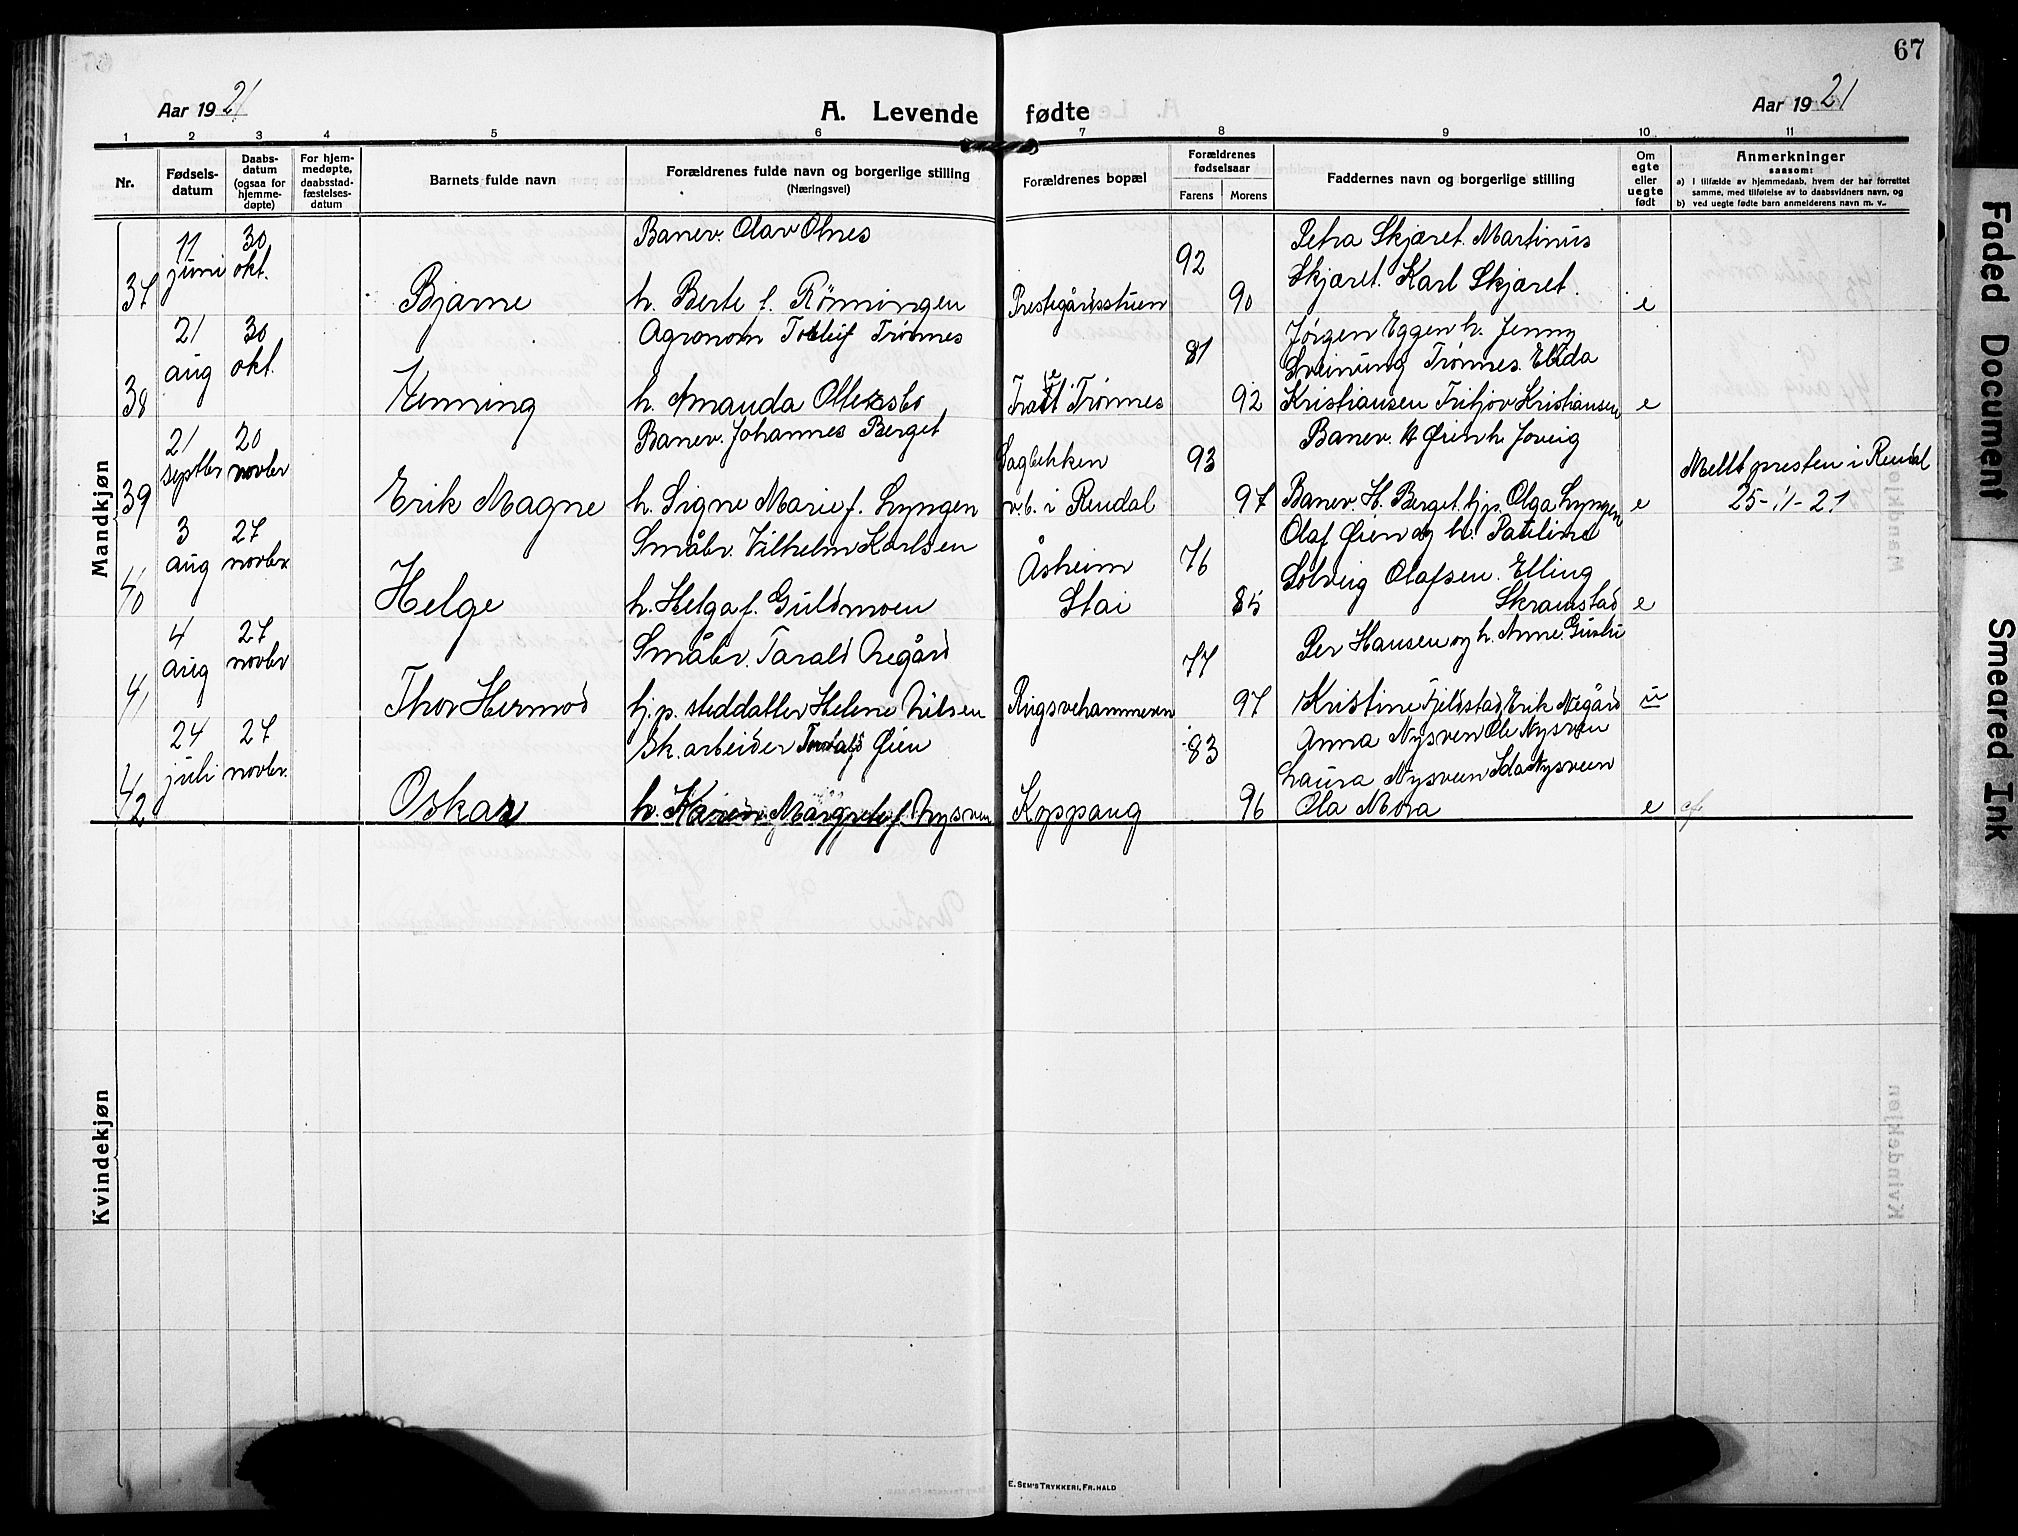 67
Aar 1921
A. Levende fødte
Aar 1921
1 2 3 4 5 6 7 8 9 10 11
Nr.
Fødsels-
datum
Daabs-
datum
(ogsaa for
hjemme-
døpte)
For hjem-
medøpte,
daabsstad-
fæstelses-
datum
Barnets fulde navn
Forældrenes fulde navn og borgerlige stilling
(Næringsvei)
Forældrenes bopæl
Forældrenes
fødselsaar
Farens Morens
Faddernes navn og borgerlige stilling
Om
egte
eller
uegte
født
Anmerkninger
saasom:
a) I tilfælde av hjemmedaab, hvem der har forrettet
samme, med tilføielse av to daabsvidners navn, og
b) ved uegte fødte barn anmelderens navn m. v..
Mandkjøn
37
11
juni
30
okt.
Bjarne
Banev. Olav Olnes
h. Berte f. Rønningen
Prestegårdsstuen
92
90
Petra Skjæret. Martinus
Skjæret. Karl Skjæret.
e
38
21
aug
30
okt.
Henning
Agronom Tollef Trønnes
h. Amanda Ottersbo
Trønnes
81
92
Jørgen Eggen h. Jenny
Sveinung Trønnes. Elida
Kristiansen Fritjov Kristiansen
e
39
21
septbr
20
novbr
Erik Magne
Banev. Johannes Berget
h. Signe Marie f. Lyngen
Sagbekken
v.b. i Rendal
93
97
Banev. Øien h.
Banev. H. Berget. tj.p. Olga Lyngen
e
Meldt presten i Rendal
25-11-21
40
3
aug
27
novbr.
Helge
Småbr. Vilhelm Karlsen
h. Helga f. Guldmoen
Åsheim
Stai
76
85
Olaf Øien og h. Pauline
Solveig Olafsen. Elling
Skramstad
e
41
4
aug
27
novbr
Thor Hermod
Småbr. Tarald Negård
tj.p. steddatter Helene Nilsen
Ringsvehammeren
77
97
Per Hansen og h. Anne.
Kristine Fjeldstad, Erik Negård
u
42
24
juli
27
novbr.
Oskar
Sk.arbeider Øien
h. Karen Margrete f. Nysven
Koppang
83
96
Anna Nysven Ole Nysven
Laura Nysveen Ida Nysveen
Ola Mora
e
Kvindekjøn
E. SEM'S TRYKKERI, FR.HALD
Faded Document
Smeared Ink